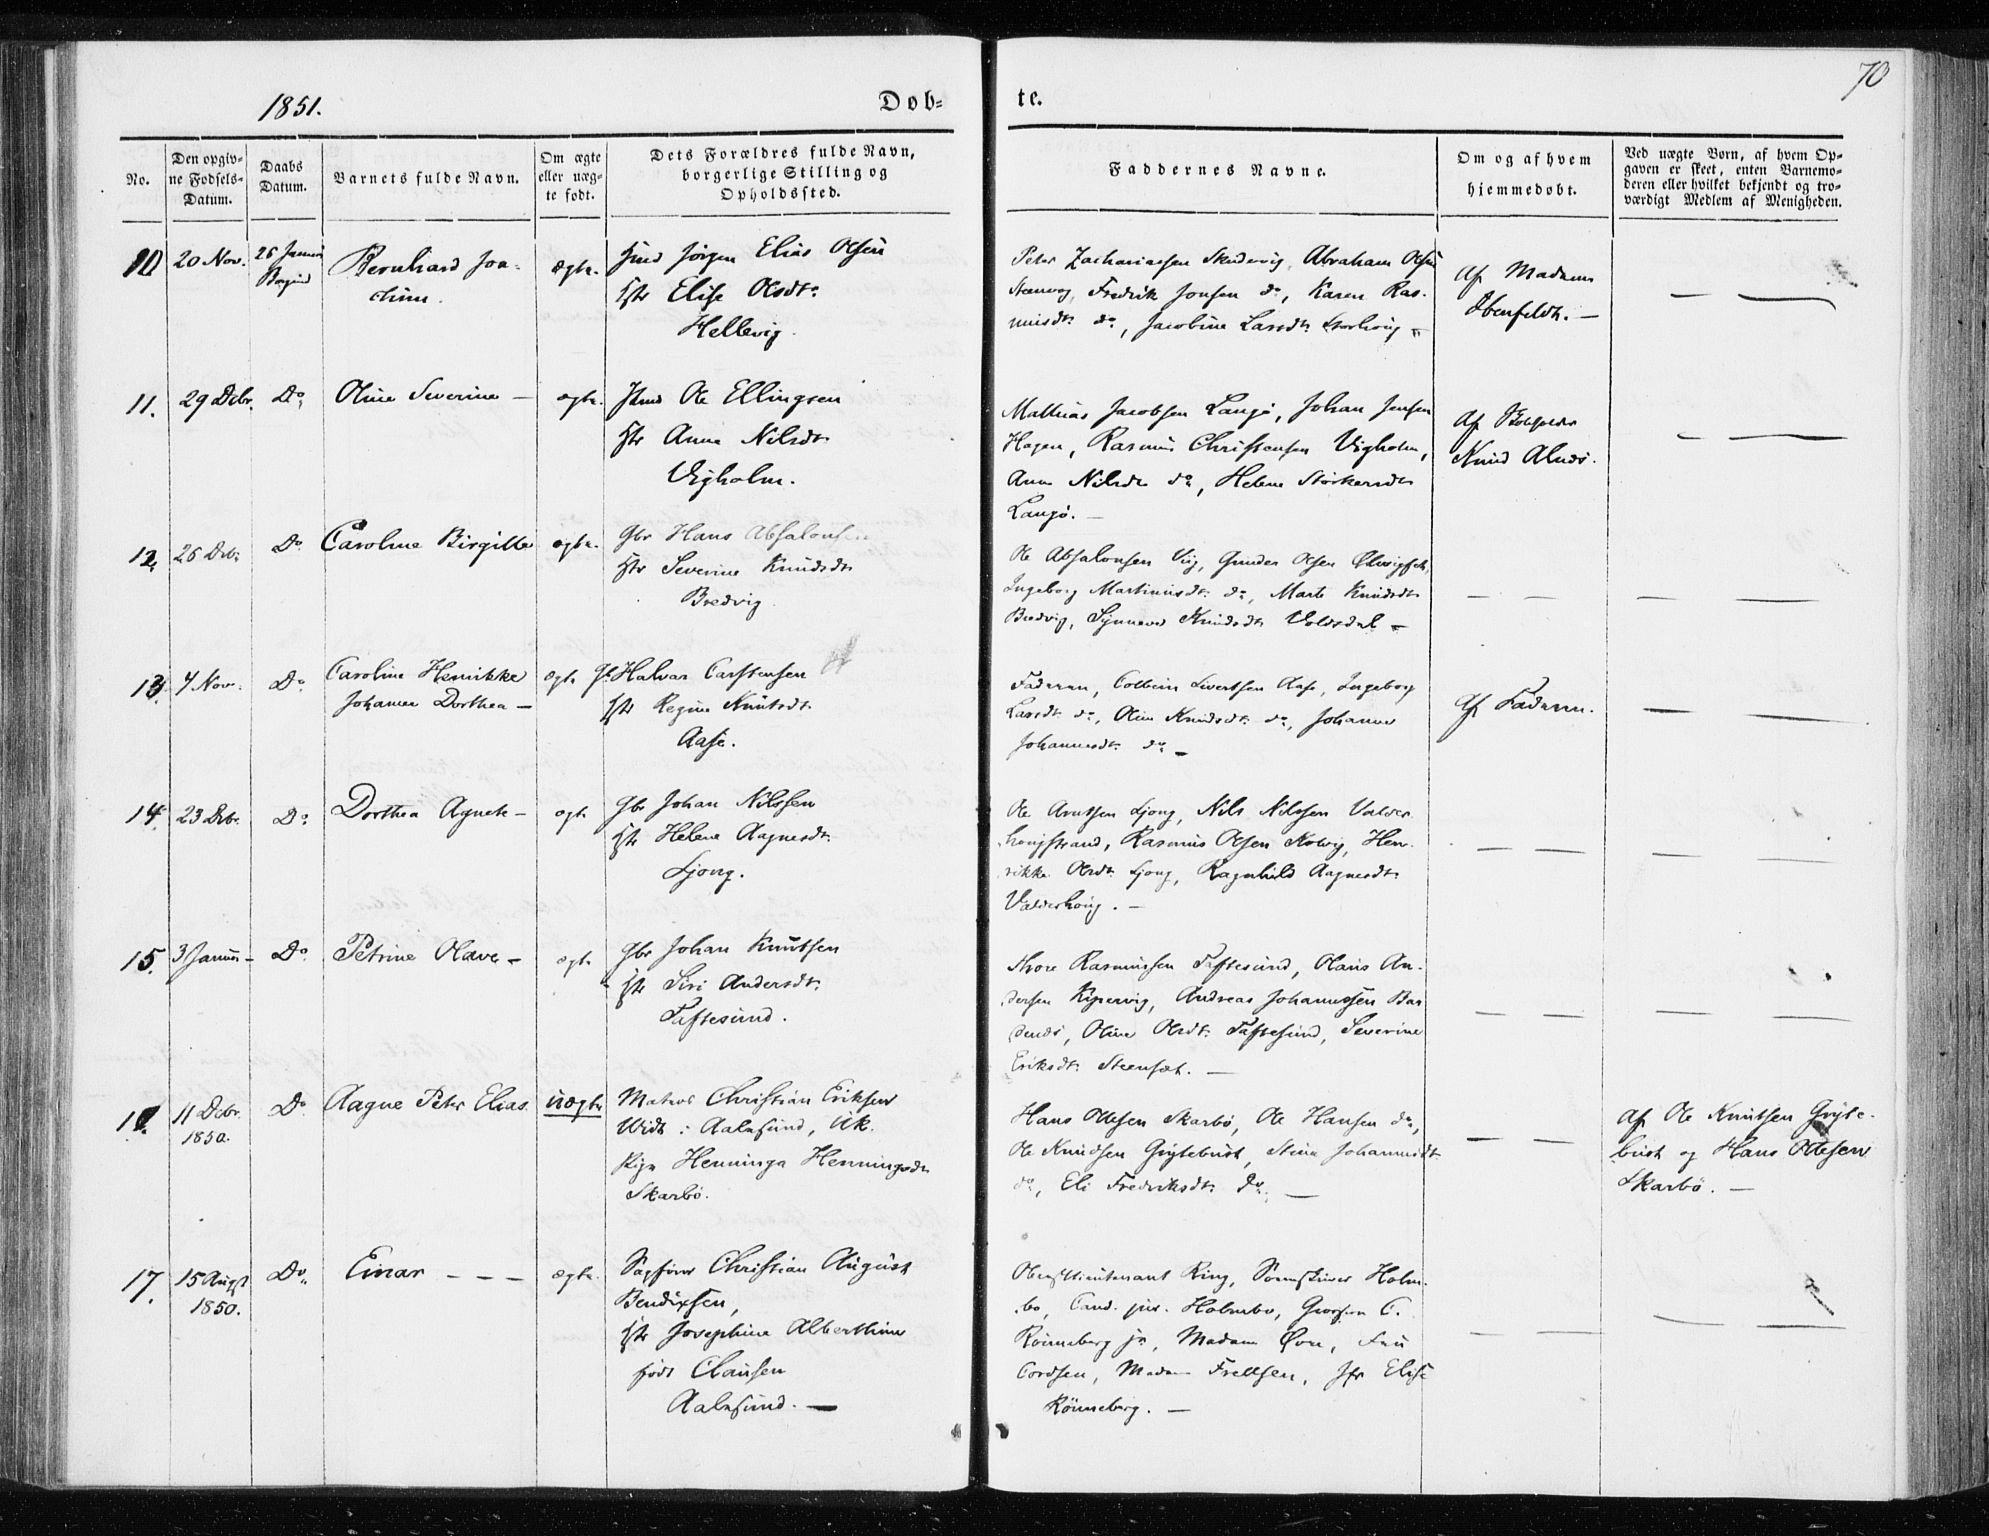 70
1851.
Døb=
te.
No.
Den opgiv=
ne Fødsels=
Datum.
Daabs
Datum.
Barnets fulde Navn.
Om ægte
eller uæg=
te født.
Dets Forældres fulde Navn,
borgerlige Stilling og
Opholdssted.
Faddernes Navne.
Om og af hvem
hjemmedøbt.
Ved uægte Børn, af hvem Op=
gaven er skeet, enten Barnemo=
deren eller hvilket bekjendt og tro=
værdigt Medlem af Menigheden.
10
20 Nov.
26 Januar
Borgund
Bernhard Joa=
chim.
ægte.
Jørgen Elias Olsen
Hstr Elise Olsdtr
Hellevig.
Peter Zachariassen Skudevig, Abraham Olsen
Steenvog, Fredrik Jonsen do, Karen Ras=
musdtr do, Jacobine Larsdtr Storhoug
Af Madam
Ibenfeldt. —
11.
29 Debr.
Do
Oline Severine —
ægte.
Ole Ellingsen
Hstr Anne Nilsdtr
Vigholm.
Mathias Jacobsen Langø, Johan Jensen
Hagen, Rasmus Christensen Vigholm,
Anne Nilsdtr do, Helene Störkersdtr
Langö. —
Af
Knud Alnæs.
12.
26 Debr
Do
Caroline Birgitte
ægte.
Gbr Hans Absalonsen
Hstr Severine Knudsdtr
Bredvig
Ole Absalonsen Vig, Gunder Olsen
Ingeborg Martinusdtr do, Marte Knudsdtr
Bredvig, Synneve Knudsdtr Voldsdal —
13.
4 Nov.
Do
Caroline Henrikke
Johanne Dorthea —
ægte
Gbr Halvar Carstensen
Hstr Regine Knutsdtr
Aase.
Faderen, Colbein Sivertsen Aase, Ingeborg
Larsdtr do, Oline Knudsdtr do, Johanne
Johannesdtr do —
Af Faderen.
14.
23 Debr.
Do
Dorthea Agnete —
ægte
Gbr Johan Nilssen
Hstr Helene Aagnesdtr
Ljong.
Ole Arntsen Ljong, Nils Nilssen Valder=
hougstrand, Rasmus Olsen Kolvig, Hen=
rikke Olsdtr Ljong, Ragnhild Aagnesdtr
Valderhoug. —
15.
3 Januar —
Do
Petrine Olave —
ægte
Gbr Johan Knutsen
Hstr Siri Andersdtr
Taftesund.
Thore Rasmussen Taftesund, Olaus An=
dersen Kipervig, Andreas Johannessen Bar
stenæs, Oline Olsdtr Taftesund, Severine
Eriksdtr Steensæt. —
16.
11 Debr.
1850.
Do
Aagne Peter Elias
uægte
Matros Christian Eriksen
Widt: Aalesund, Uk.
Pige Henninga Henningsdtr
Skarbö.
Hans Olesen Skarbö, Ole Hansen do,
Ole Knudsen Grytebust, Stine Johannesdtr
do, Eli Fredriksdtr do. —
af Ole Knutsen Gryte=
bust og Hans Olesen
Skarbö. —
17.
15 Augst
1850.
Do
Einar — — —
ægte.
Sagfører Christian August
Bendixsen,
Hstr Josephine Alberthine
født Clausen
Aalesund. —
Oberstlieutenant Ring, Sorenskriver Holm=
bo, Cand. jur. Holmbo, Grosserer C.
Rönneberg jr, Madam Øvre, Fru
Cordsen, Madam Frettsen, Jfr Elise
Rönneberg. —